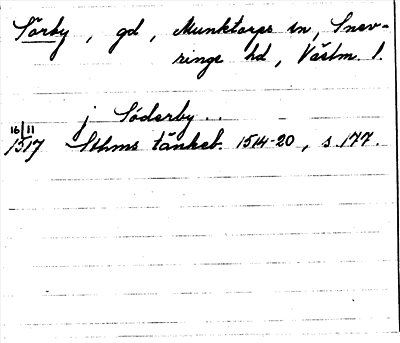 Sörby, gd, Munktorps sn, Snev-
ringe hd, Västm. l.
j Söderby ..
16/11
1517 Sthms tänkeb. 1514-20, s. 177.